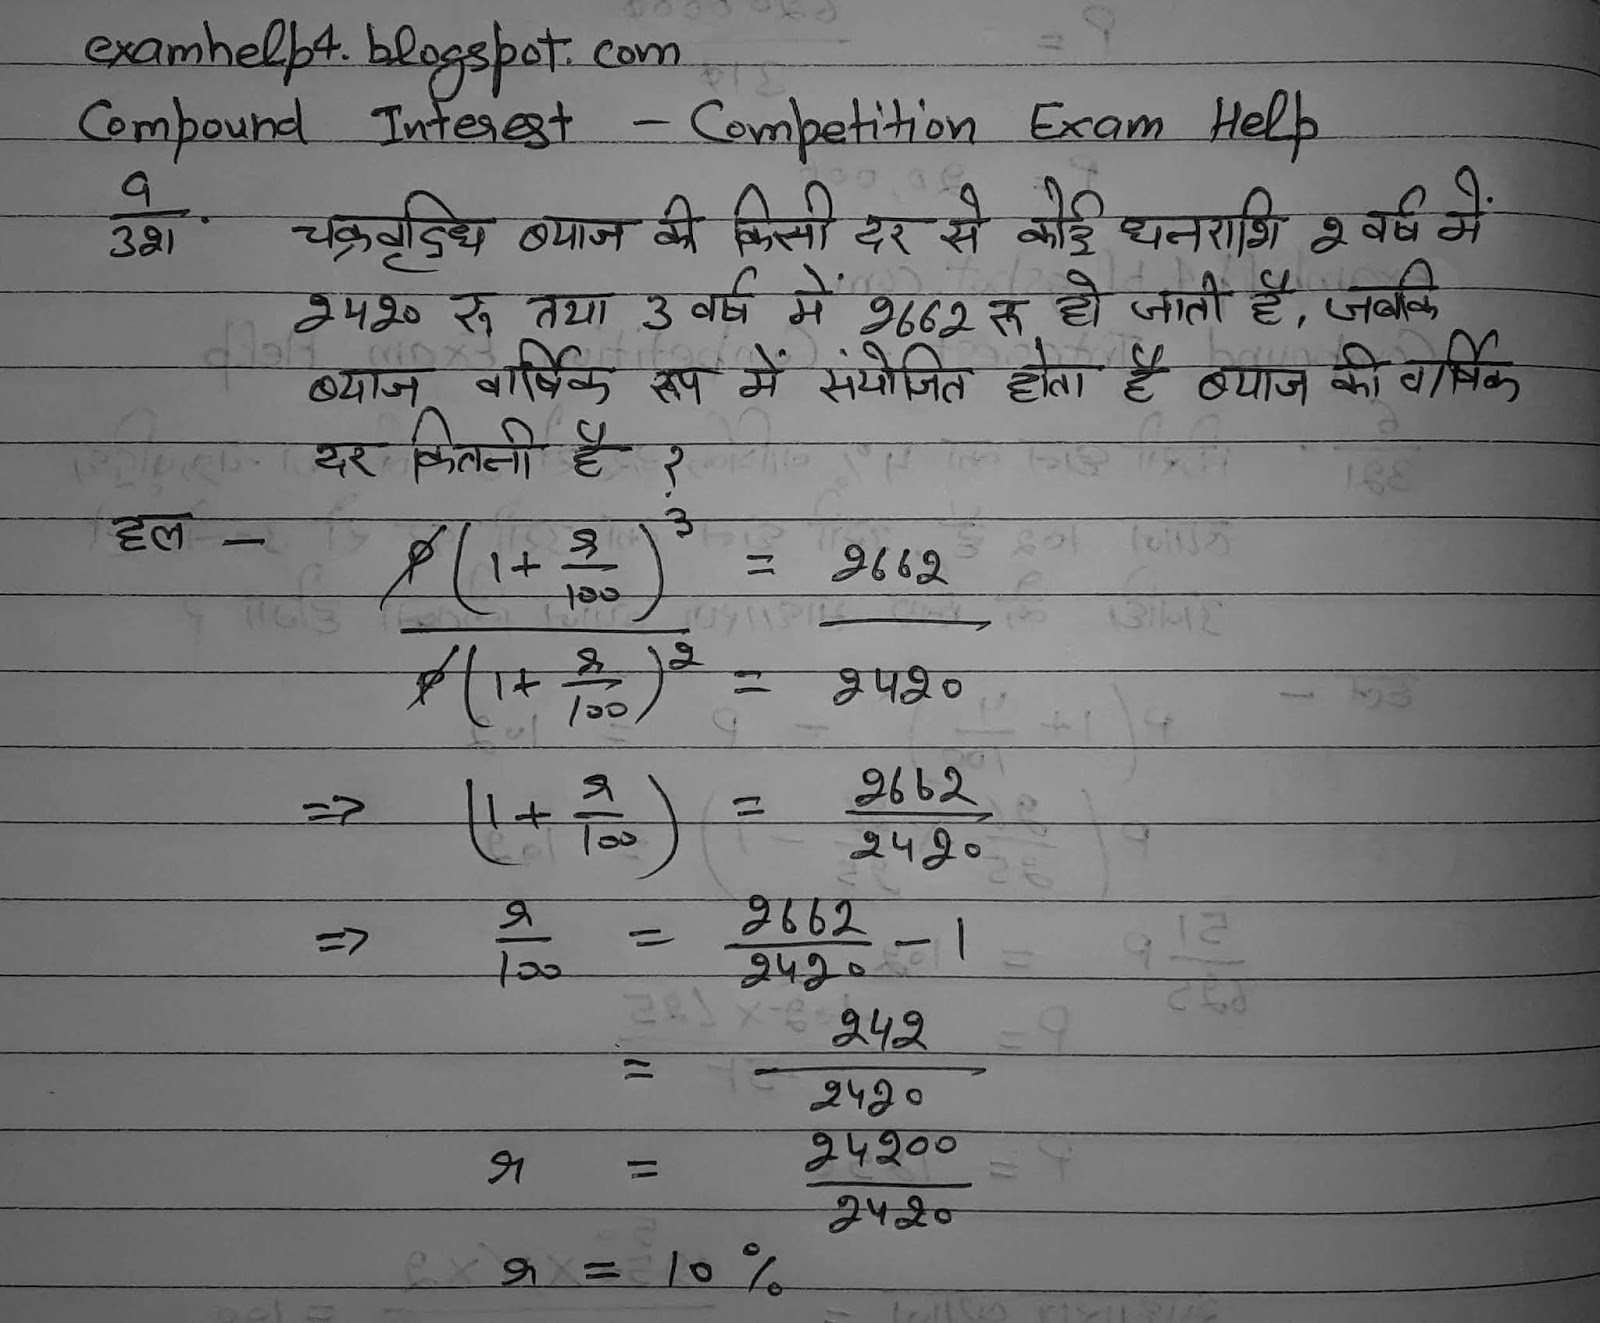 examhelp4.blogspot.com
Compound Interest - Competition Exam Help
9/321. चक्रवृद्धि ब्याज की किसी दर से कोई धनराशि 2 वर्ष में
2420 रू तथा 3 वर्ष में 2662 रू हो जाती है, जबकि
ब्याज वार्षिक रूप में संयोजित होता है ब्याज की वार्षिक
दर कितनी है ?
हल - P(1+r/100)^3 = 2662
P(1+r/100)^2 = 2420
=> (1+r/100) = 2662/2420
=> r/100 = 2662/2420 - 1
= 242/2420
r = 24200/2420
r = 10%